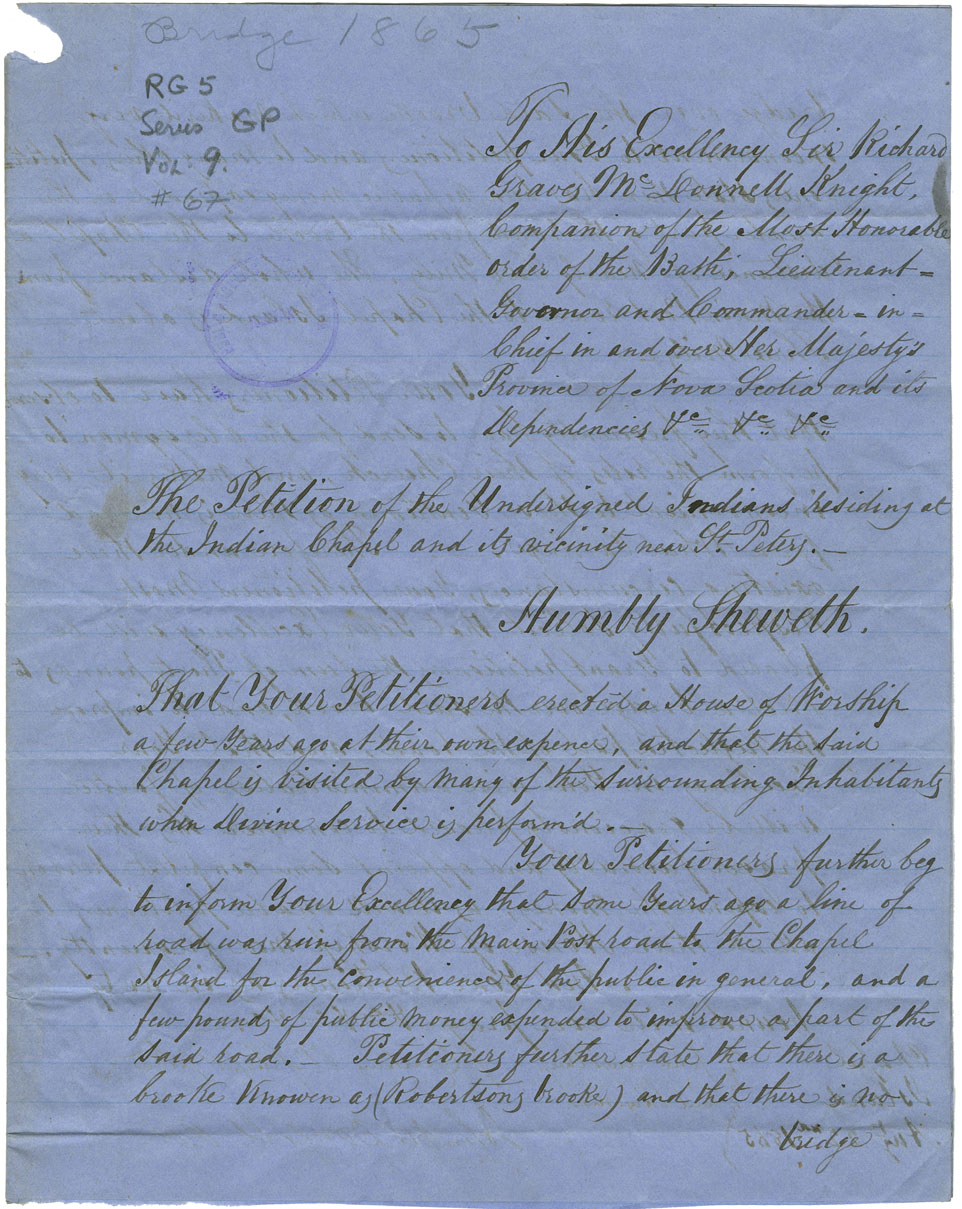 Bridge 1865
RG 5
Series GP
Vol. 9.
# 67
To His Excellency Sir Richard
Graves McDonnell Knight,
Companion of the Most Honorable
order of the Bath, Lieutenant=
Governor and Commander=in=
Chief in and over Her Majesty's
Province of Nova Scotia and its
Dependencies &c &c &c
The Petition of the Undersigned Indians residing at
the Indian Chapel and its vicinity near St. Peters.—
Humbly Sheweth.
That Your Petitioners erected a House of Worship
a few Years ago at their own expence, and that the said
Chapel is visited by many of the surrounding Inhabitants
when Divine Service is perform'd.—
Your Petitioners further beg
to inform Your Excellency that some Years ago a line of
road was run from the Main Post road to the Chapel
Island for the convenience of the public in general, and a
few pounds of public money expended to improve a part of the
said road.— Petitioners further state that there is a
brooke Knowen as (Robertsons brooke) and that there is no
bridge